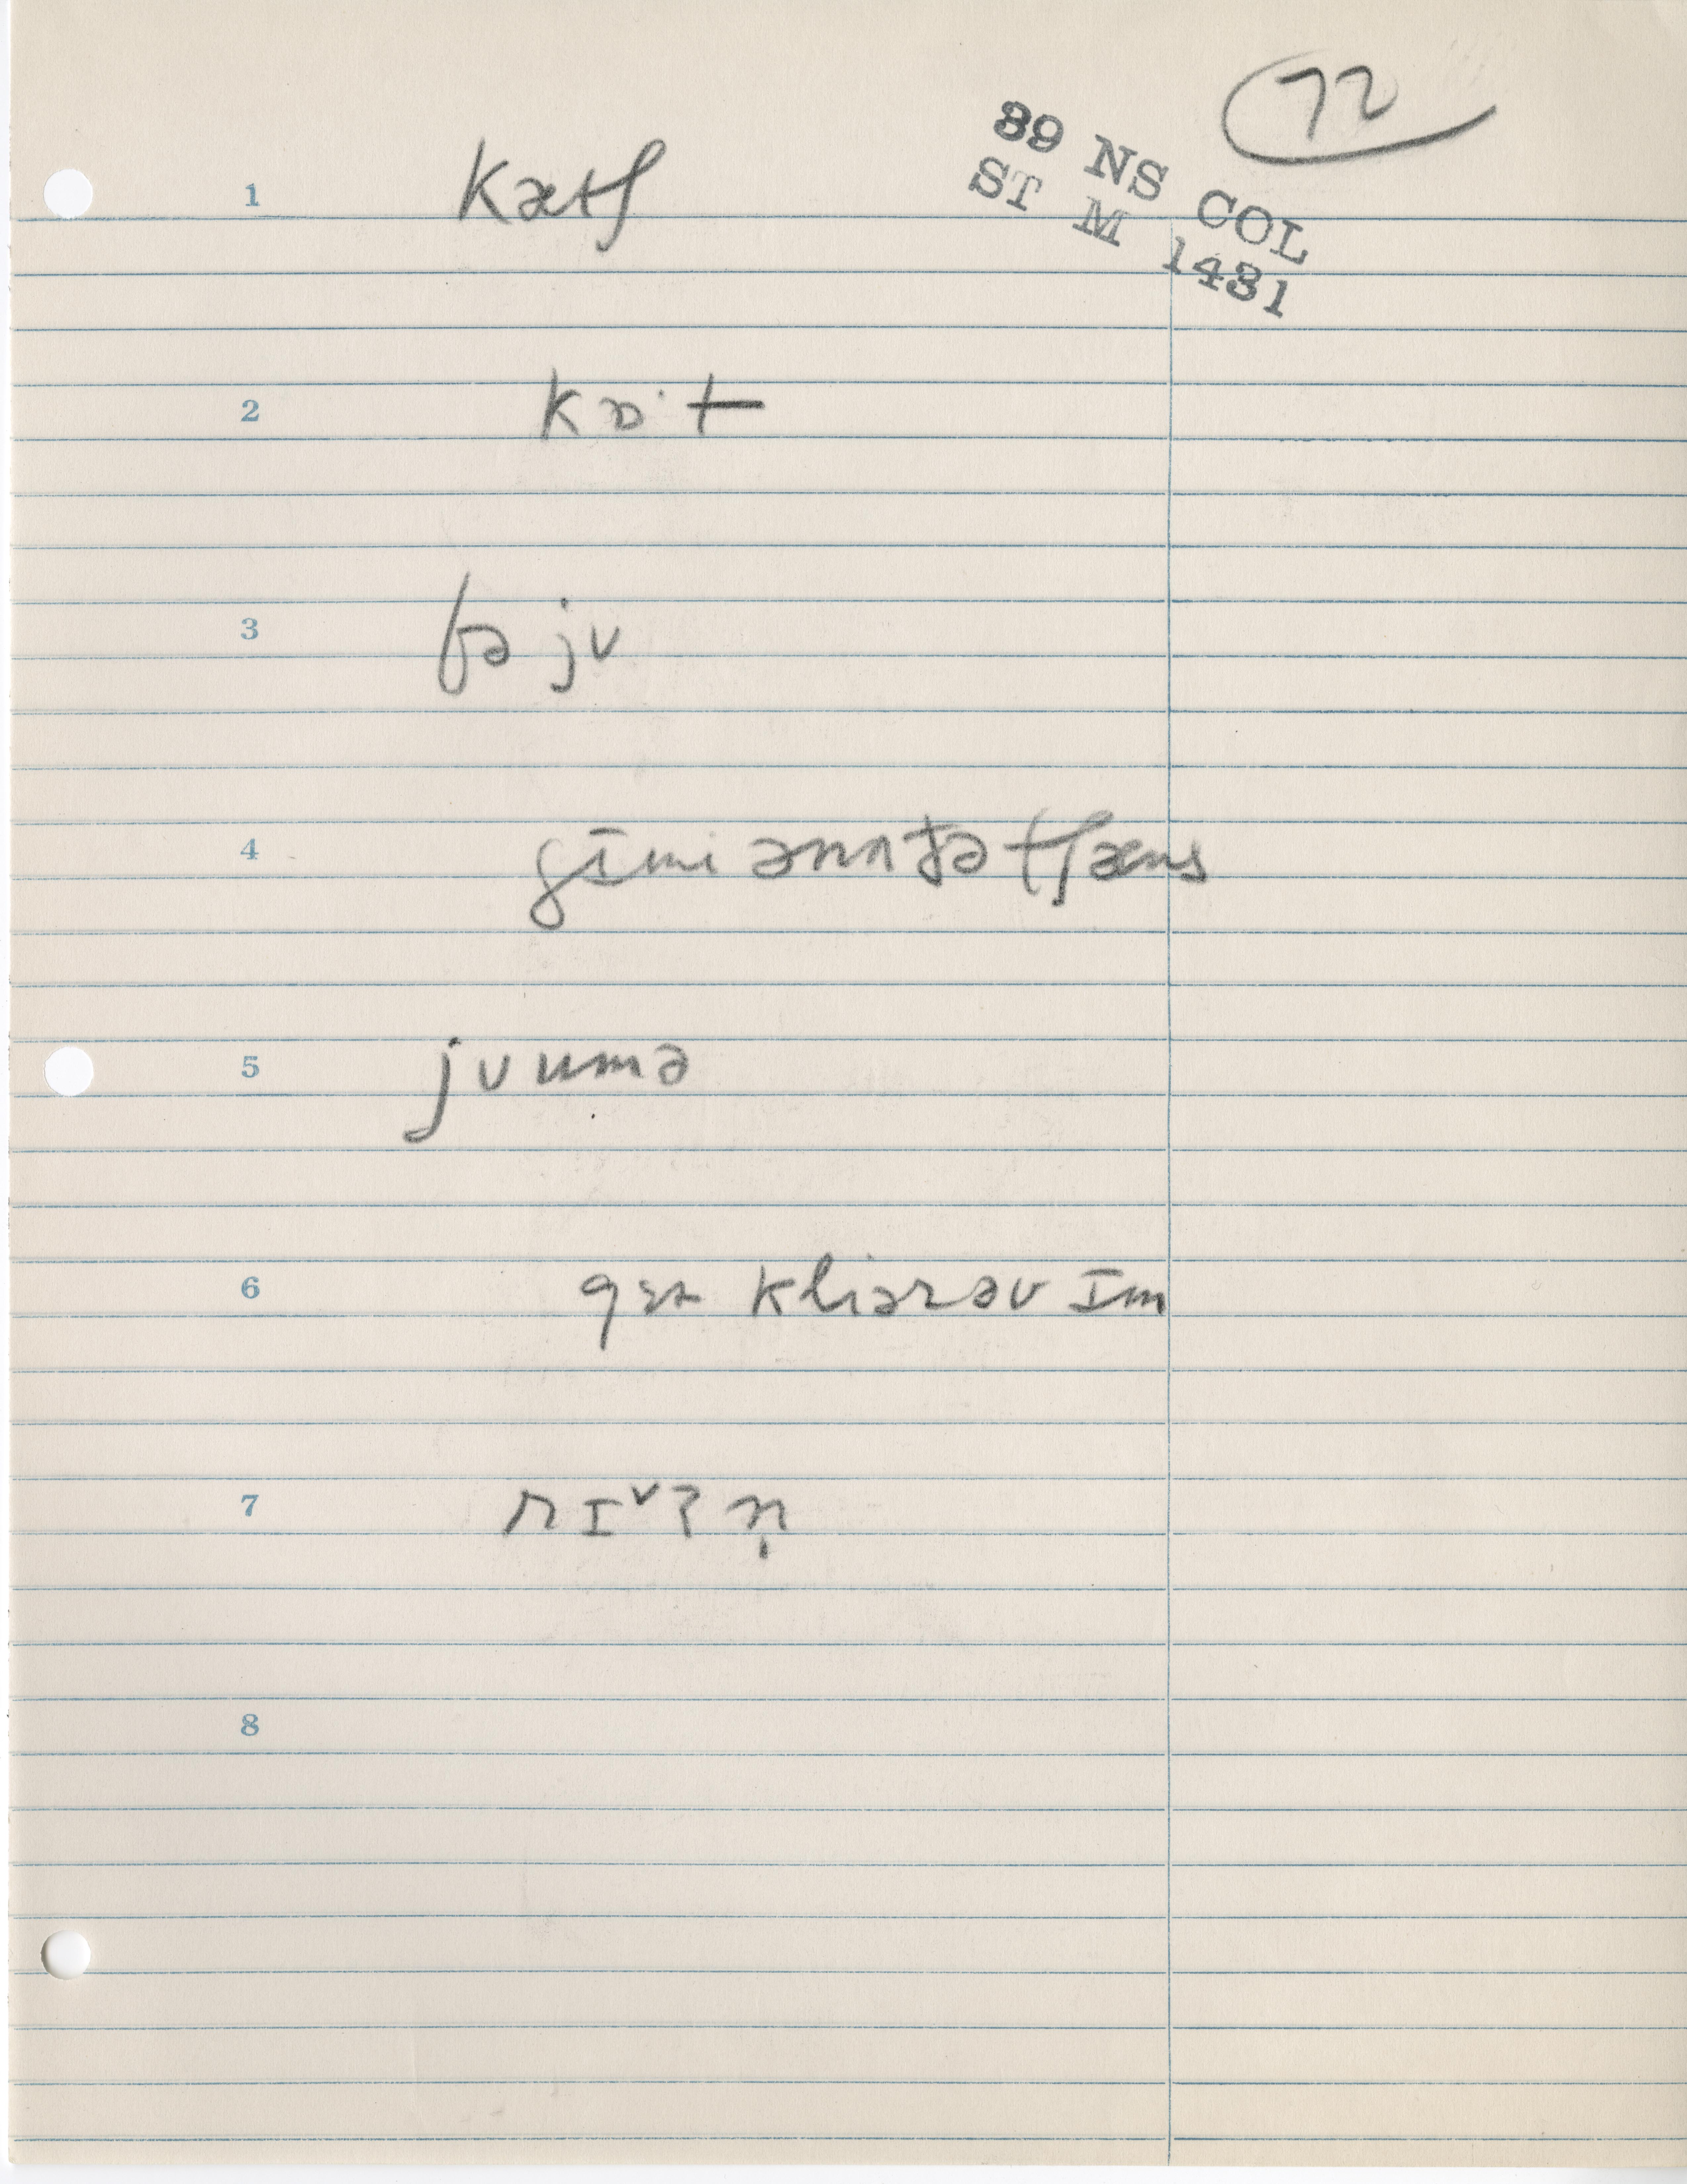 72
89 NS COL
ST M 1431
1 kætʃ
2 kɒ·t
3 fə jʊ
4 gɪmi ənʌðə tʃæns
5 jʊumə
6 klɪərəv ɪm
7 rɪᵛʔn̩
8